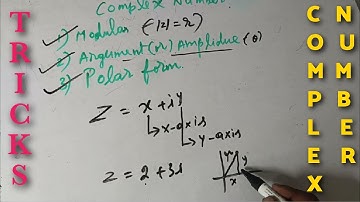 TRICKS
Complex Number
1) Modular (-|z|=r)
2) Argument (or) Amplidue (θ)
3) Polar form.
Z = x + iy
x-axis
y-axis
z = 2 + 3i
r y
x
COMPLEX
NUMBER